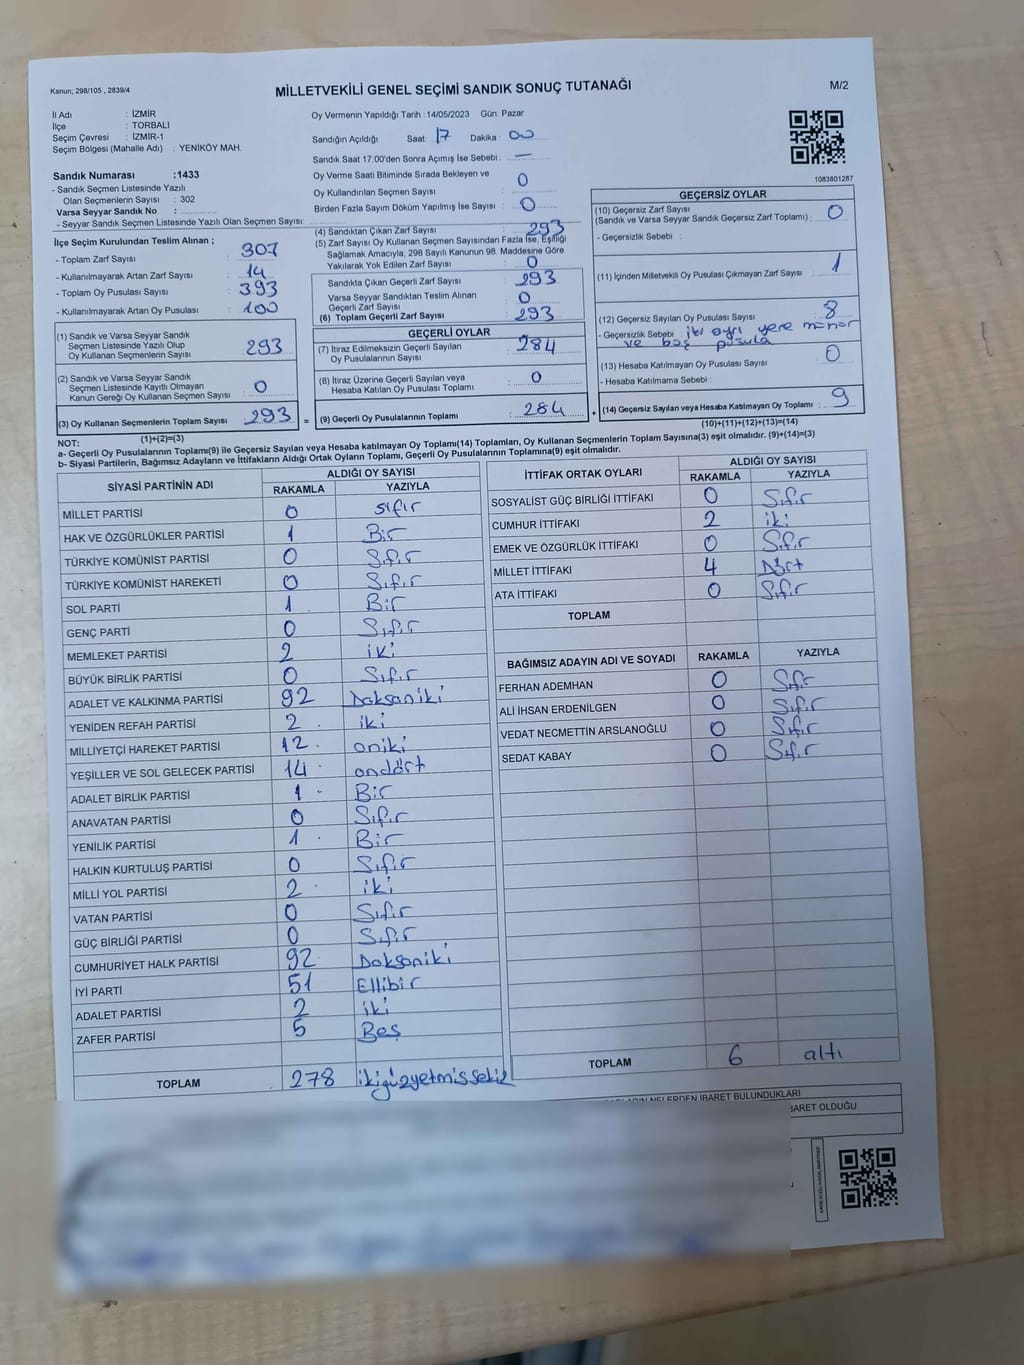 Kanun; 298/105 , 2839/4
MİLLETVEKİLİ GENEL SEÇİMİ SANDIK SONUÇ TUTANAĞI
M/2
İl Adı : İZMİR
İlçe : TORBALI
Seçim Çevresi : İZMİR-1
Seçim Bölgesi (Mahalle Adı) : YENİKÖY MAH.
Oy Vermenin Yapıldığı Tarih :14/05/2023 Gün: Pazar
Sandığın Açıldığı Saat: 17 Dakika : 00
Sandık Saat 17:00'den Sonra Açımış İse Sebebi : —
Oy Verme Saati Bitiminde Sırada Bekleyen ve
Oy Kullandırılan Seçmen Sayısı : 0
Birden Fazla Sayım Döküm Yapılmış İse Sayısı : 0
1083801287
Sandık Numarası :1433
- Sandık Seçmen Listesinde Yazılı
Olan Seçmenlerin Sayısı : 302
Varsa Seyyar Sandık No :
- Seyyar Sandık Seçmen Listesinde Yazılı Olan Seçmen Sayısı:
İlçe Seçim Kurulundan Teslim Alınan ;
- Toplam Zarf Sayısı : 307
- Kullanılmayarak Artan Zarf Sayısı : 14
- Toplam Oy Pusulası Sayısı : 393
- Kullanılmayarak Artan Oy Pusulası : 100
(1) Sandık ve Varsa Seyyar Sandık
Seçmen Listesinde Yazılı Olup
Oy Kullanan Seçmenlerin Sayısı : 293
(2) Sandık ve Varsa Seyyar Sandık
Seçmen Listesinde Kayıtlı Olmayan
Kanun Gereği Oy Kullanan Seçmen Sayısı : 0
(3) Oy Kullanan Seçmenlerin Toplam Sayısı : 293 =
(1)+(2)=(3)
(4) Sandıktan Çıkan Zarf Sayısı : 293
(5) Zarf Sayısı Oy Kullanan Seçmen Sayısından Fazla İse, Eşitliği
Sağlamak Amacıyla, 298 Sayılı Kanunun 98. Maddesine Göre
Yakılarak Yok Edilen Zarf Sayısı : 0
Sandıkta Çıkan Geçerli Zarf Sayısı : 293
Varsa Seyyar Sandıktan Teslim Alınan
Geçerli Zarf Sayısı : 0
(6) Toplam Geçerli Zarf Sayısı : 293
GEÇERLİ OYLAR
(7) İtiraz Edilmeksizin Geçerli Sayılan
Oy Pusulalarının Sayısı : 284
(8) İtiraz Üzerine Geçerli Sayılan veya
Hesaba Katılan Oy Pusulası Toplamı : 0
(9) Geçerli Oy Pusulalarının Toplamı : 284 +
GEÇERSİZ OYLAR
(10) Geçersiz Zarf Sayısı
(Sandık ve Varsa Seyyar Sandık Geçersiz Zarf Toplamı) : 0
- Geçersizlik Sebebi :
(11) İçinden Milletvekili Oy Pusulası Çıkmayan Zarf Sayısı : 1
(12) Geçersiz Sayılan Oy Pusulası Sayısı : 8
- Geçersizlik Sebebi : iki ayrı yere mühür
ve boş pusula
(13) Hesaba Katılmayan Oy Pusulası Sayısı : 0
- Hesaba Katılmama Sebebi :
(14) Geçersiz Sayılan veya Hesaba Katılmayan Oy Toplamı : 9
(10)+(11)+(12)+(13)=(14)
NOT:
a- Geçerli Oy Pusulalarının Toplamı(9) ile Geçersiz Sayılan veya Hesaba katılmayan Oy Toplamı(14) Toplamları, Oy Kullanan Seçmenlerin Toplam Sayısına(3) eşit olmalıdır. (9)+(14)=(3)
b- Siyasi Partilerin, Bağımsız Adayların ve İttifakların Aldığı Ortak Oyların Toplamı, Geçerli Oy Pusulalarının Toplamına(9) eşit olmalıdır.
SİYASİ PARTİNİN ADI
ALDIĞI OY SAYISI
RAKAMLA YAZIYLA
MİLLET PARTİSİ 0 sıfır
HAK VE ÖZGÜRLÜKLER PARTİSİ 1 Bir
TÜRKİYE KOMÜNİST PARTİSİ 0 Sıfır
TÜRKİYE KOMÜNİST HAREKETİ 0 Sıfır
SOL PARTİ 1 Bir
GENÇ PARTİ 0 Sıfır
MEMLEKET PARTİSİ 2 iki
BÜYÜK BİRLİK PARTİSİ 0 Sıfır
ADALET VE KALKINMA PARTİSİ 92 Doksaniki
YENİDEN REFAH PARTİSİ 2 iki
MİLLİYETÇİ HAREKET PARTİSİ 12 oniki
YEŞİLLER VE SOL GELECEK PARTİSİ 14 ondört
ADALET BİRLİK PARTİSİ 1 Bir
ANAVATAN PARTİSİ 0 Sıfır
YENİLİK PARTİSİ 1 Bir
HALKIN KURTULUŞ PARTİSİ 0 Sıfır
MİLLİ YOL PARTİSİ 2 iki
VATAN PARTİSİ 0 Sıfır
GÜÇ BİRLİĞİ PARTİSİ 0 Sıfır
CUMHURİYET HALK PARTİSİ 92 Doksaniki
İYİ PARTİ 51 Ellibir
ADALET PARTİSİ 2 iki
ZAFER PARTİSİ 5 Beş
TOPLAM 278 ikiyüzyetmişsekiz
İTTİFAK ORTAK OYLARI
ALDIĞI OY SAYISI
RAKAMLA YAZIYLA
SOSYALİST GÜÇ BİRLİĞİ İTTİFAKI 0 Sıfır
CUMHUR İTTİFAKI 2 iki
EMEK VE ÖZGÜRLÜK İTTİFAKI 0 Sıfır
MİLLET İTTİFAKI 4 Dört
ATA İTTİFAKI 0 Sıfır
TOPLAM
BAĞIMSIZ ADAYIN ADI VE SOYADI RAKAMLA YAZIYLA
FERHAN ADEMHAN 0 Sıfır
ALİ İHSAN ERDENİLGEN 0 Sıfır
VEDAT NECMETTİN ARSLANOĞLU 0 Sıfır
SEDAT KABAY 0 Sıfır
TOPLAM 6 altı
NELERDEN İBARET BULUNDUKLARI
BARET OLDUĞU